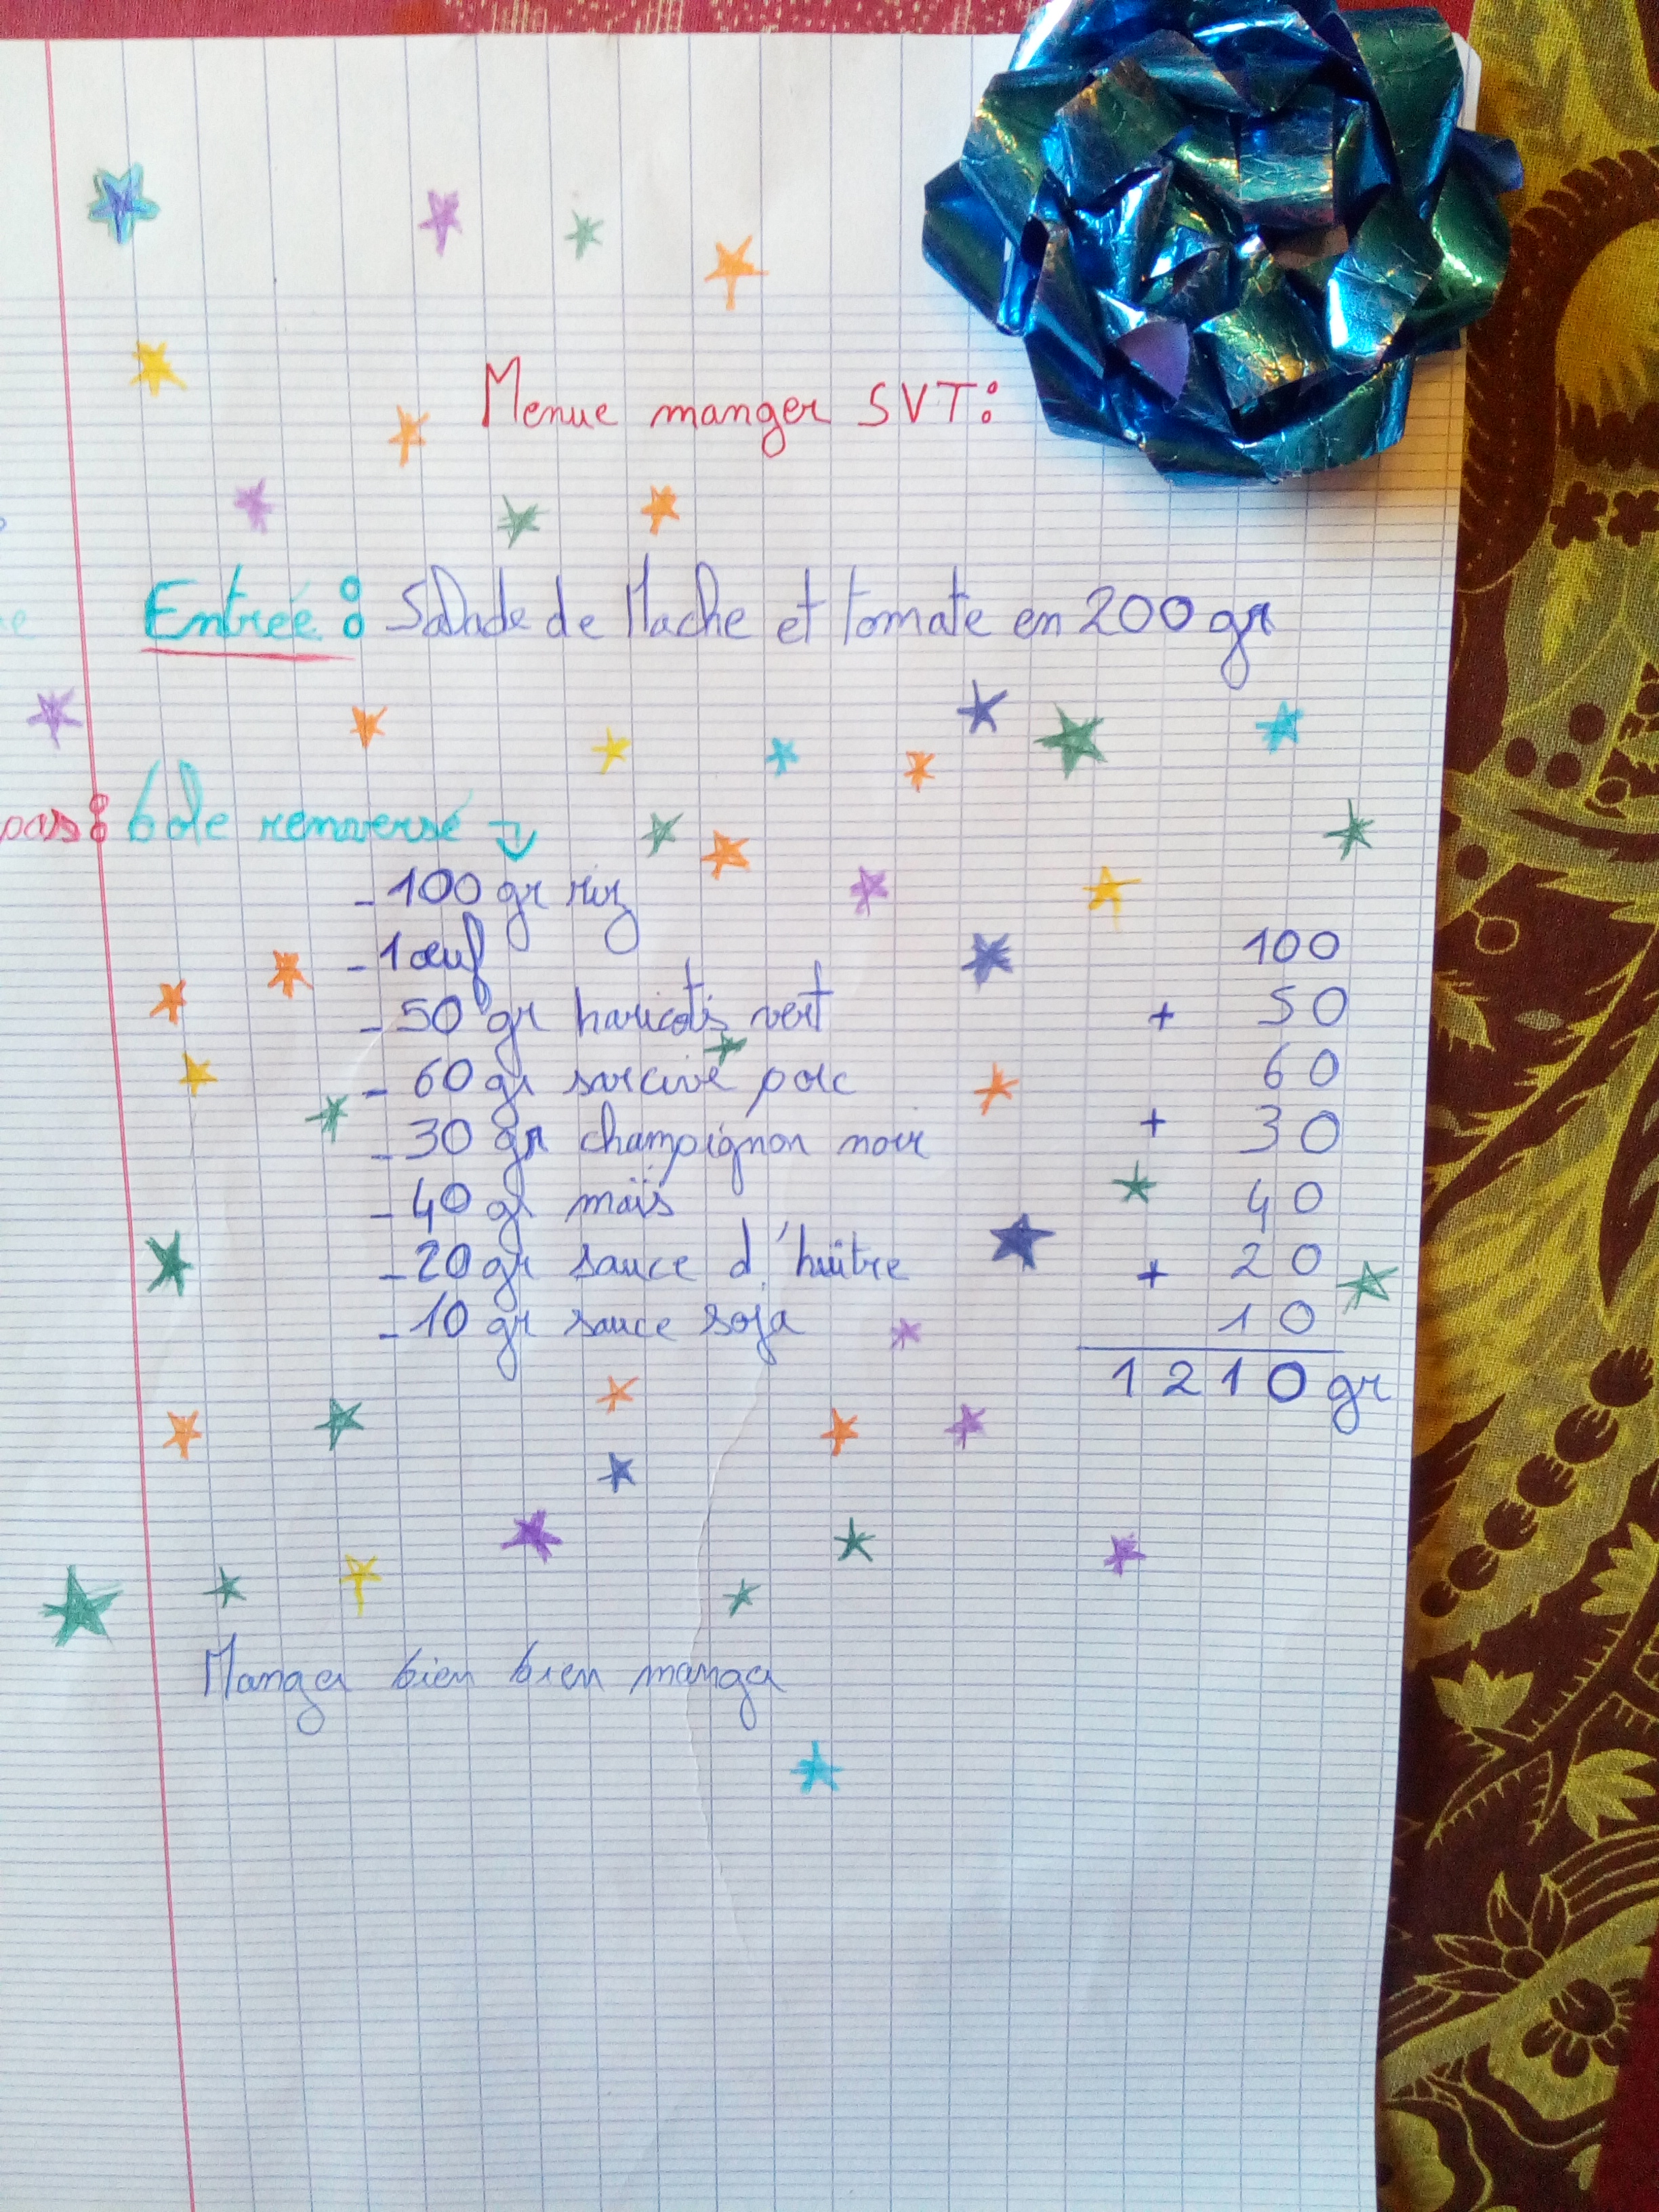 Menue manger SVT:
Entrée: Salade de Mache et tomate en 200 gr
pas: bole renversé
- 100 gr riz
- 1 œuf
- 50 gr haricots vert 
- 60 gr sarcive porc
- 30 gr champignon noir
- 40 gr maïs
- 20 gr sauce d'huître
- 10 gr sauce soja
100
+ 50
60
+ 30
40
+ 20
10
1210 gr
Manger bien bien manger